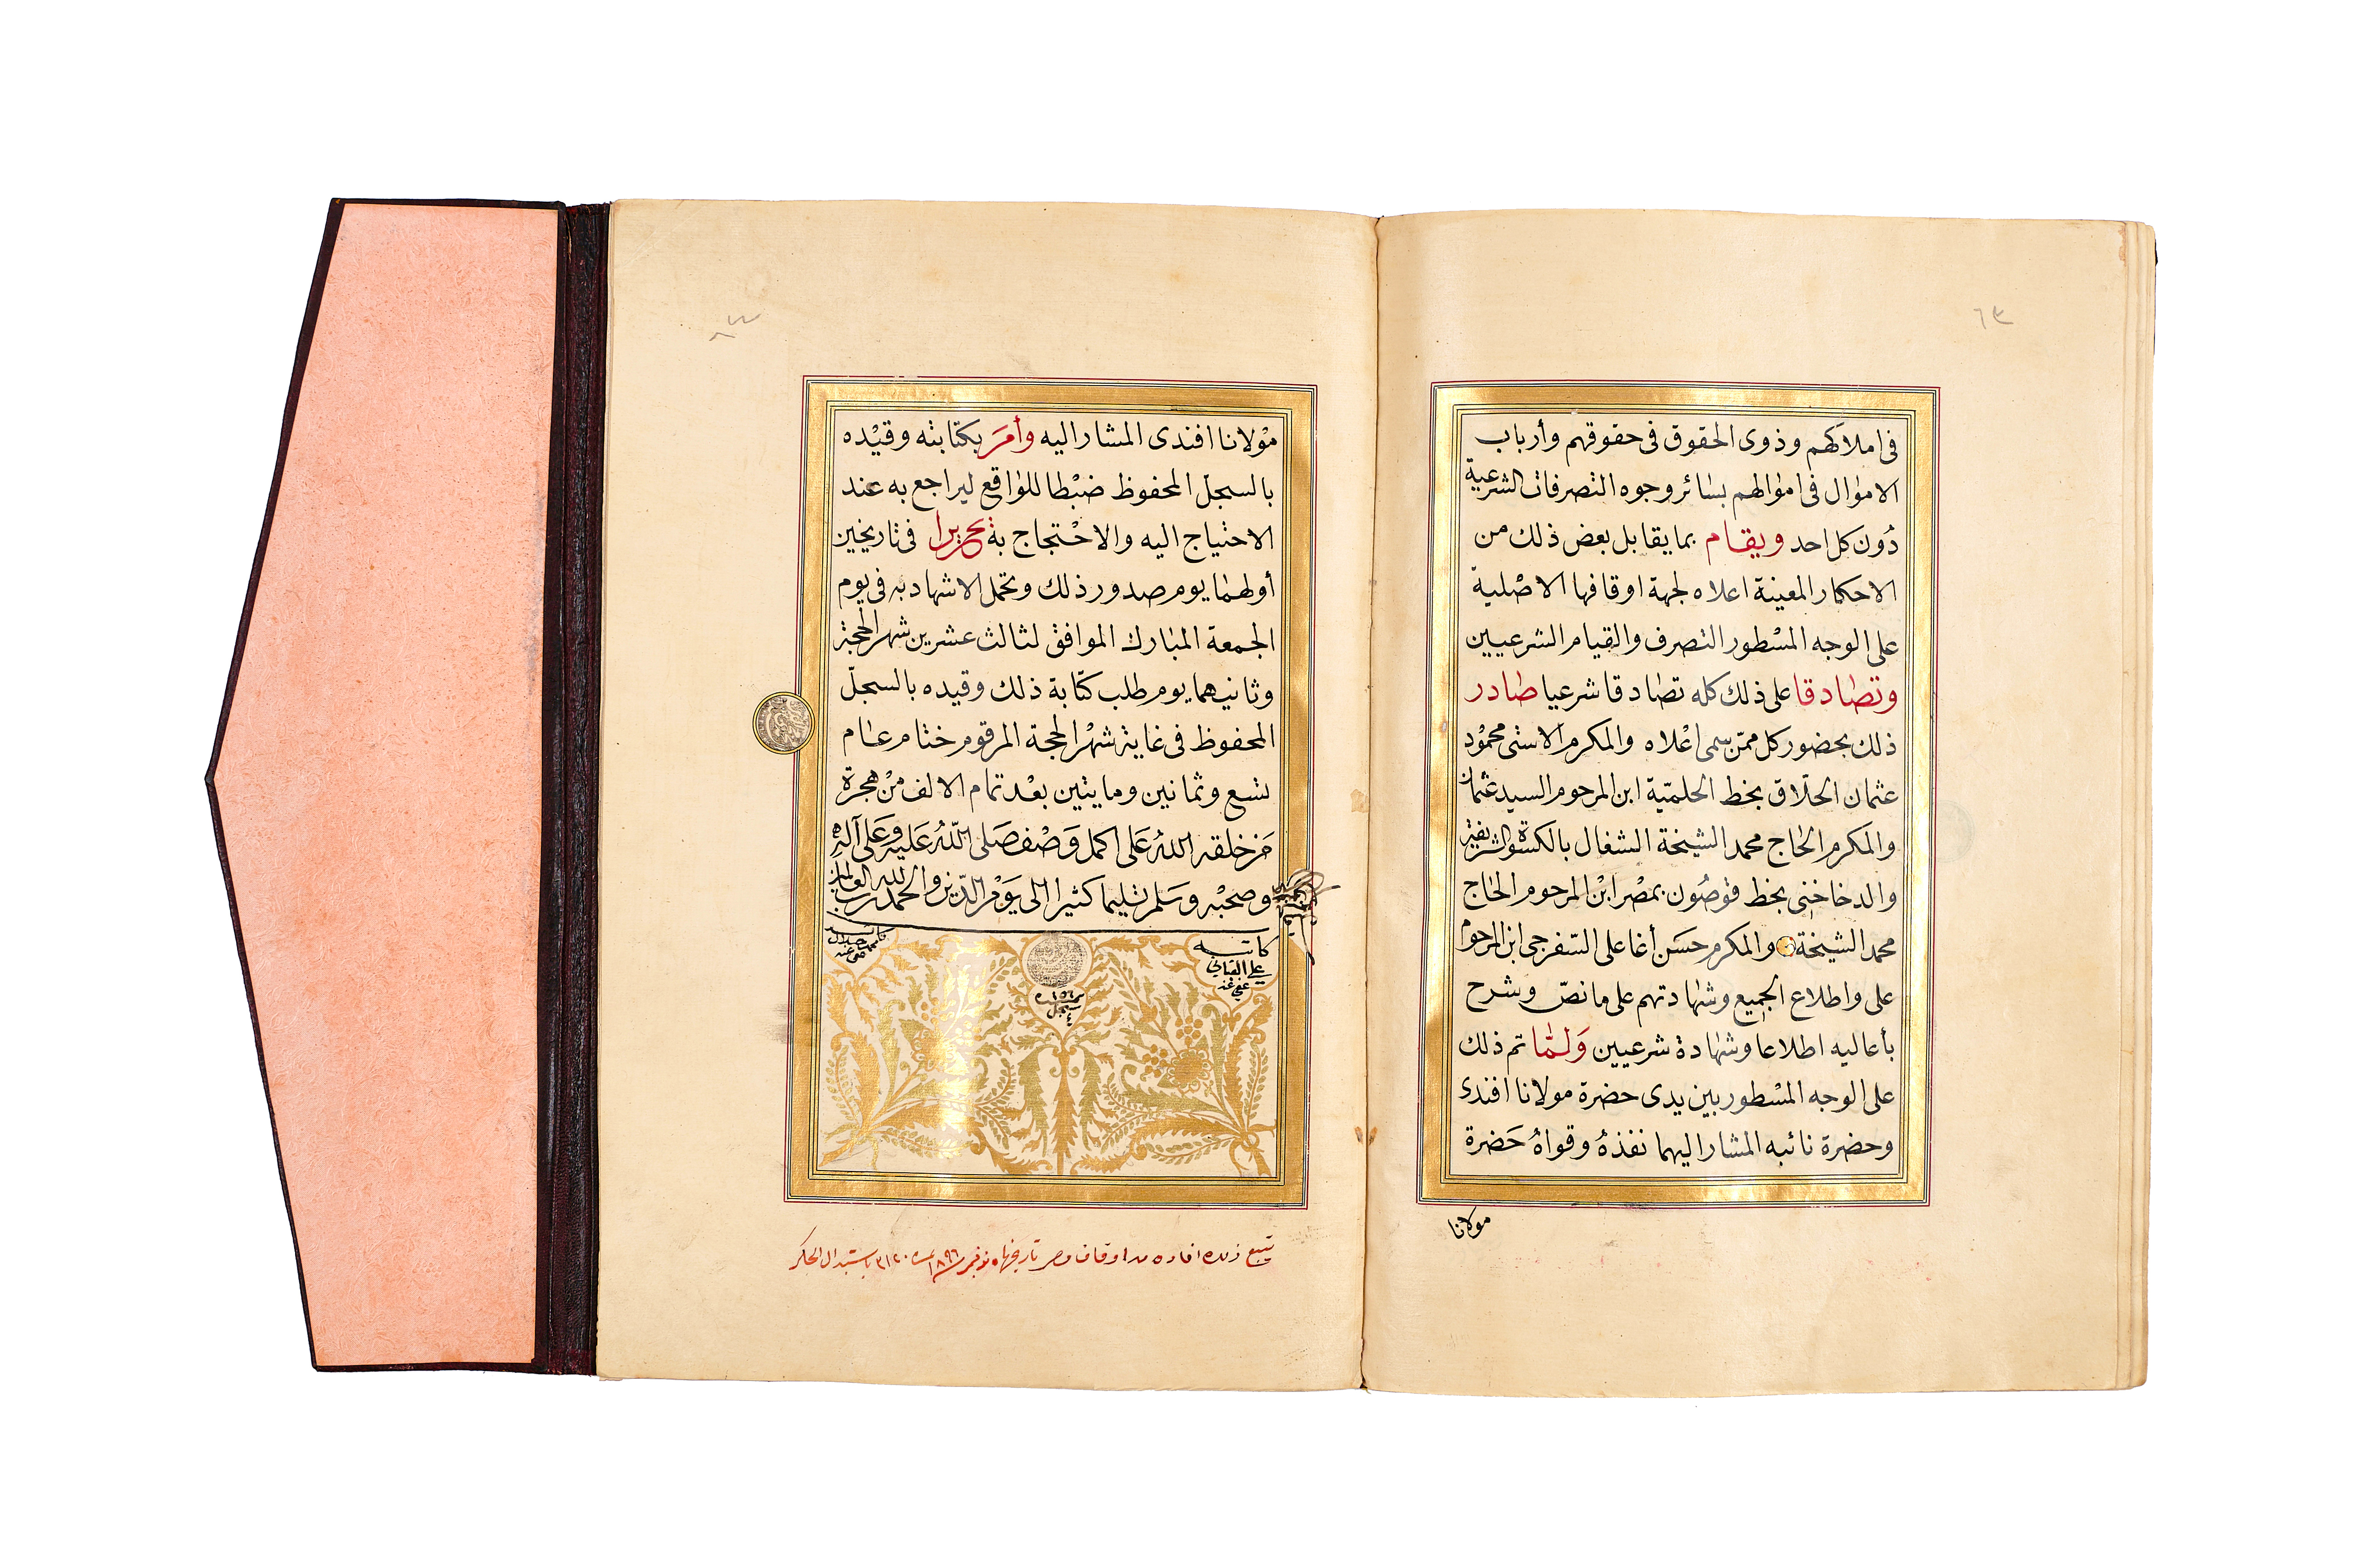 فى املاكهم وذوى الحقوق فى حقوقهم وأرباب
الاموال فى اموالهم بسائر وجوه التصرفات الشرعية
دون كل احد ويقام بما يقابل بعض ذلك من
الاحكار المعينة اعلاه لجهة اوقافها الاصلية
على الوجه المسطور التصرف والقيام الشرعيين
وتصادقا على ذلك كله تصادقا شرعيا صادر
ذلك بحضور كل ممن سمى اعلاه والمكرم الاسنى محمود
عثمان الحلاق بخط الحلمية ابن المرحوم السيد عثمان
والمكرم الحاج محمد الشيخة الشغال بالكسوة الشريفة
والدخاخنى بخط قوصون بمصر ابن المرحوم الحاج
محمد الشيخة والمكرم حسن أغا على السفرجى ابن المرحوم
على واطلاع الجميع وشهادتهم على ما نص وشرح
بأعاليه اطلاعا وشهادة شرعيين ولما تم ذلك
على الوجه المسطور بين يدى حضرة مولانا افندى
وحضرة نائبه المشار اليهما نفذه وقواه حضرة
مولانا
مولانا افندى المشار اليه وأمر بكتابته وقيده
بالسجل المحفوظ ضبطا للواقع ليراجع به عند
الاحتياج اليه والاحتجاج به تحريرا فى تاريخين
أولهما يوم صدور ذلك وتحمل الاشهاد به فى يوم
الجمعة المبارك الموافق لثالث عشرين شهر الحجة
وثانيهما يوم طلب كتابة ذلك وقيده بالسجل
المحفوظ فى غاية شهر الحجة المرقوم ختام عام
تسع وثمانين ومايتين بعد تمام الالف من هجرة
من خلقه الله على اكمل وصف صلى الله عليه وعلى آله
وصحبه وسلم تسليما كثيرا الى يوم الدين والحمد لله رب العالمين
كاتبه
على القبانى
عفى عنه
سجل
يتبع ذلك افاده من اوقاف مصر تاريخها ٥ نوفمبر سنة ١٨٩٦ باستبدال الحكر